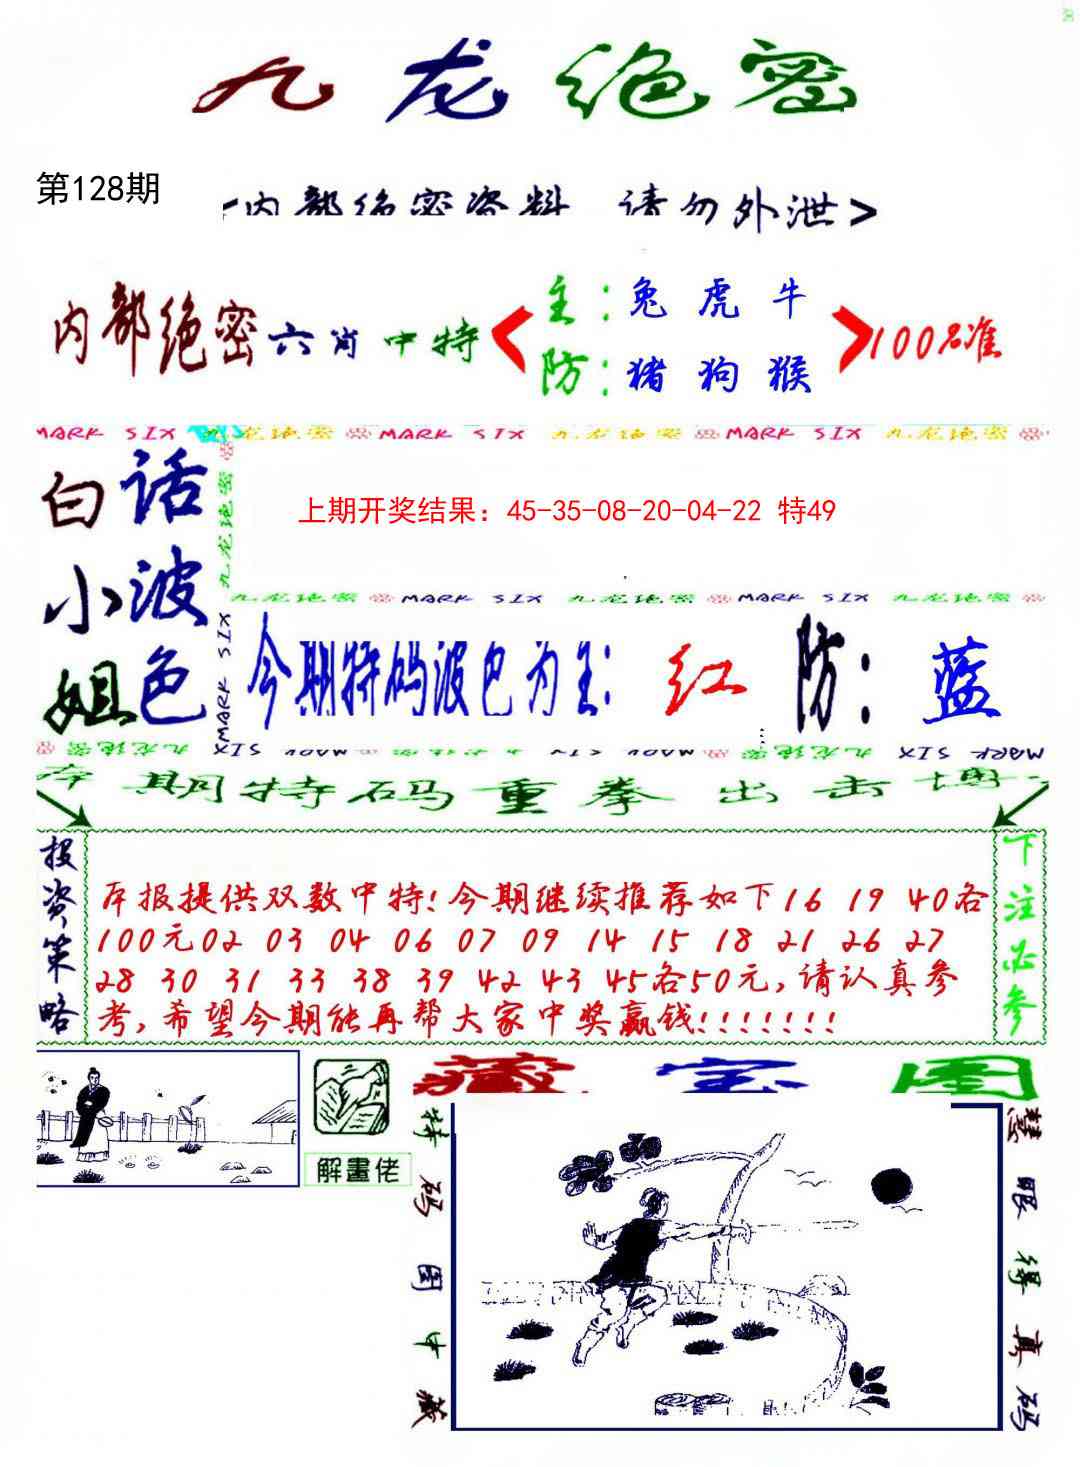 九龙绝密
第128期
<内部绝密资料 请勿外泄>
内部绝密六肖中特
主:兔 虎 牛
防:猪 狗 猴
100%准
MARK SIX 九龙绝密 MARK SIX 九龙绝密 MARK SIX 九龙绝密
白小姐
话波色
九龙绝密
MARK SIX
上期开奖结果：45-35-08-20-04-22 特49
九龙绝密 MARK SIX 九龙绝密 MARK SIX 九龙绝密
今期特码波色为主: 红 防: 蓝
九龙绝密 MARK SIX 九龙绝密 MARK SIX 九龙绝密 MARK SIX
本期特码重拳出击博
投资策略
本报提供双数中特!今期继续推荐如下16 19 40各
100元02 03 04 06 07 09 14 15 18 21 26 27
28 30 31 33 38 39 42 43 45各50元,请认真参
考,希望今期能再帮大家中奖赢钱!!!!!!!
下注必参
解畫佬
藏宝图
特码图中藏
慧眼得真码